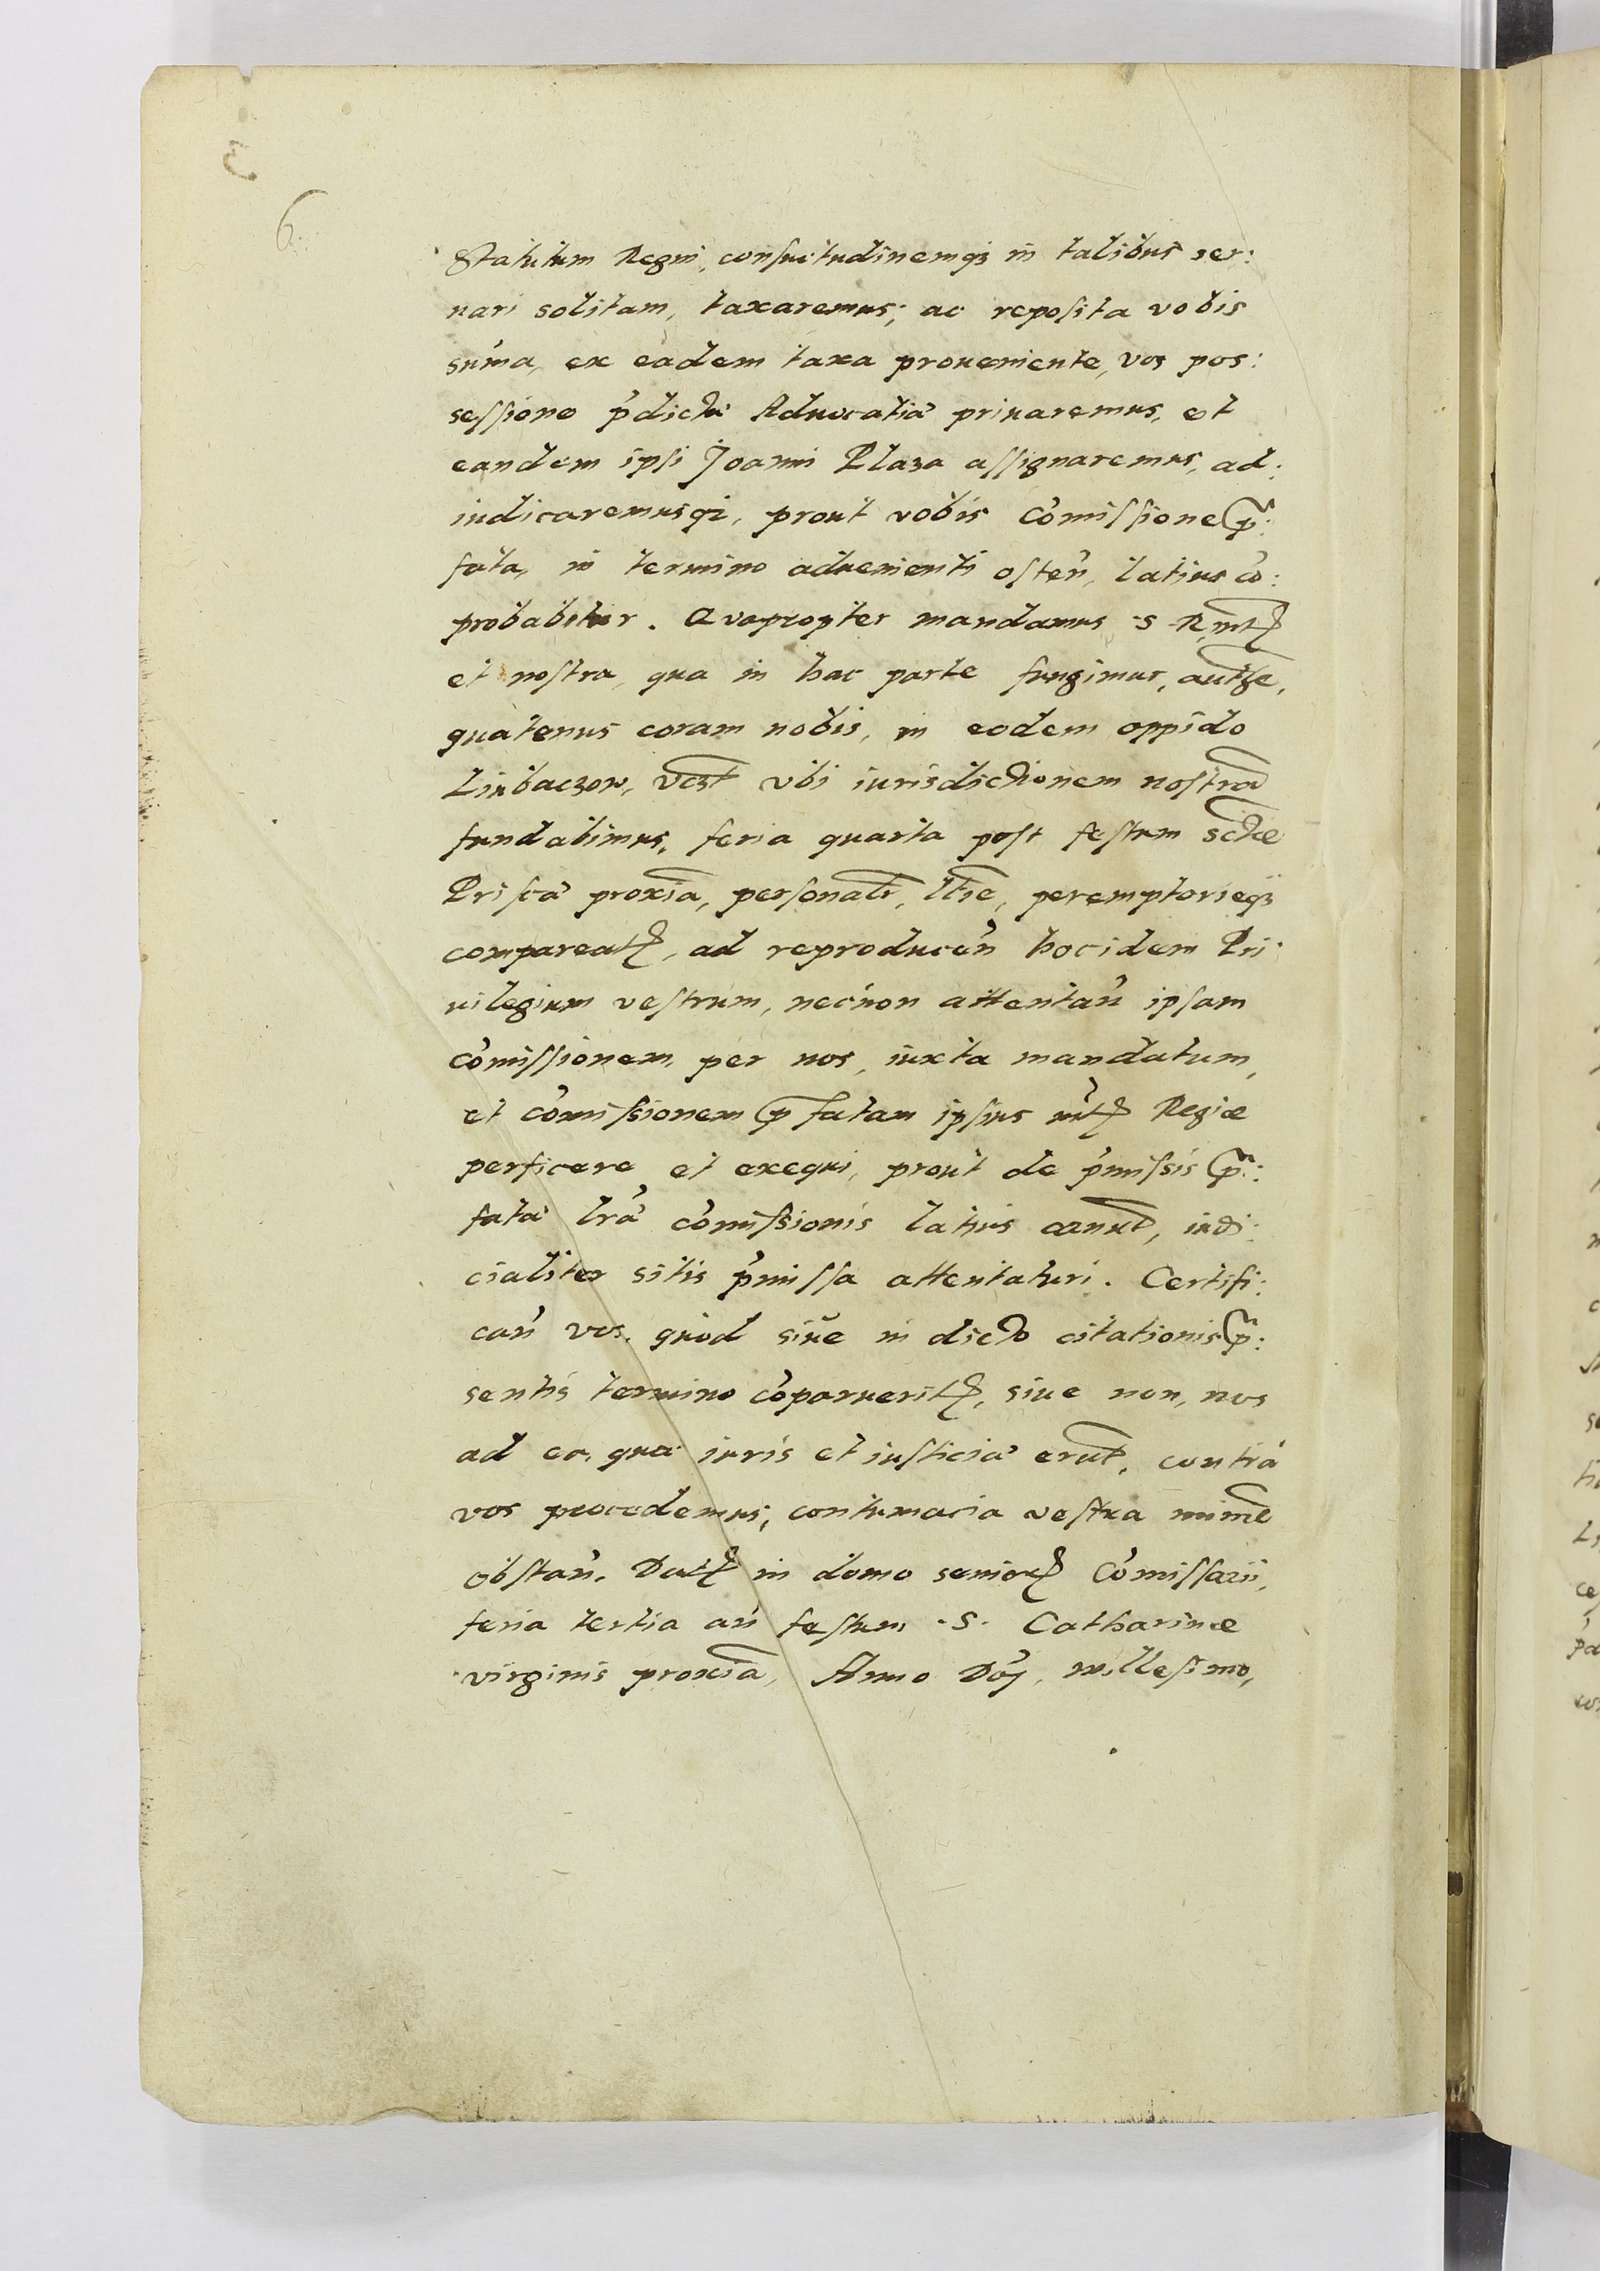 6.
Statutum Regni, consuetudinemqȝ in talibus ser:
uari solitam, taxaremus; ac reposita vobis
sum̃a, ex eadem taxa proueniente, vos pos:
sessione p̃dictæ Aduocatiæ priuaremus, et
eandem ipsi Joanni Plaza assignaremus, ad:
iudicaremusqȝ, prout vobis com̃issione p̃:
fata, in termino aduenienti osteñ, latius cõ:
probabitur. Quapropter mandamus S. R. mtis
et nostra, qua in hac parte fungimur, autħe,
quatenus coram nobis, in eodem oppido
Liubaczow, vel ubi iurisdictionem nostrã
fundabimus, feria quarta post festum sctæ
Priscæ proxiã, personalr̃, ltie, peremptorieqȝ
compareatis, ad reproduceñ hocidem Pri:
uilegium vestrum, necnon attentañ ipsam
com̃issionem, per nos, iuxta mandatum,
et com̃issionem p̃fatam ipsius mtis Regiæ
perficere et exequi, prout de p̃missis p̃:
fatæ lræ com̃issionis latius canut, iudi:
cialiter sitis p̃missa attentaturi. Certifi:
cañ vos, quod siue in dicto citationis p̃:
sentis termino cõparueritis, siue non, nos
ad ea, quæ iuris et iusticiæ erut, contra
vos procedemus, contumacia vestra minime
obstañ. Datis in domo senioris Com̃issarii,
feria tertia añ festum S. Catharinæ
virginis proxiã, Anno Dñj, millesimo,